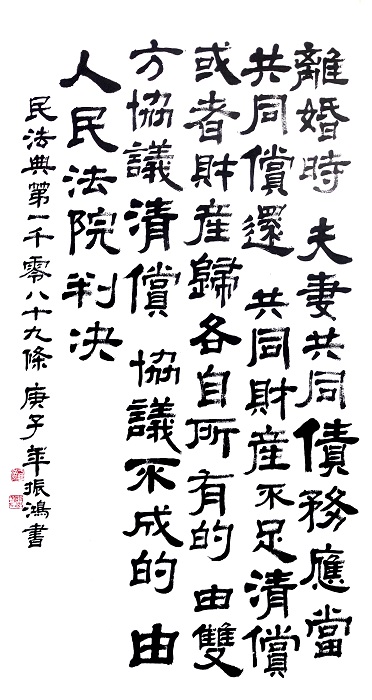 離婚時 夫妻共同債務應當
共同償還 共同財產不足清償
或者財產歸各自所有的 由雙
方協議清償 協議不成的 由
人民法院判决
民法典第一千零八十九條 庚子年振鴻書